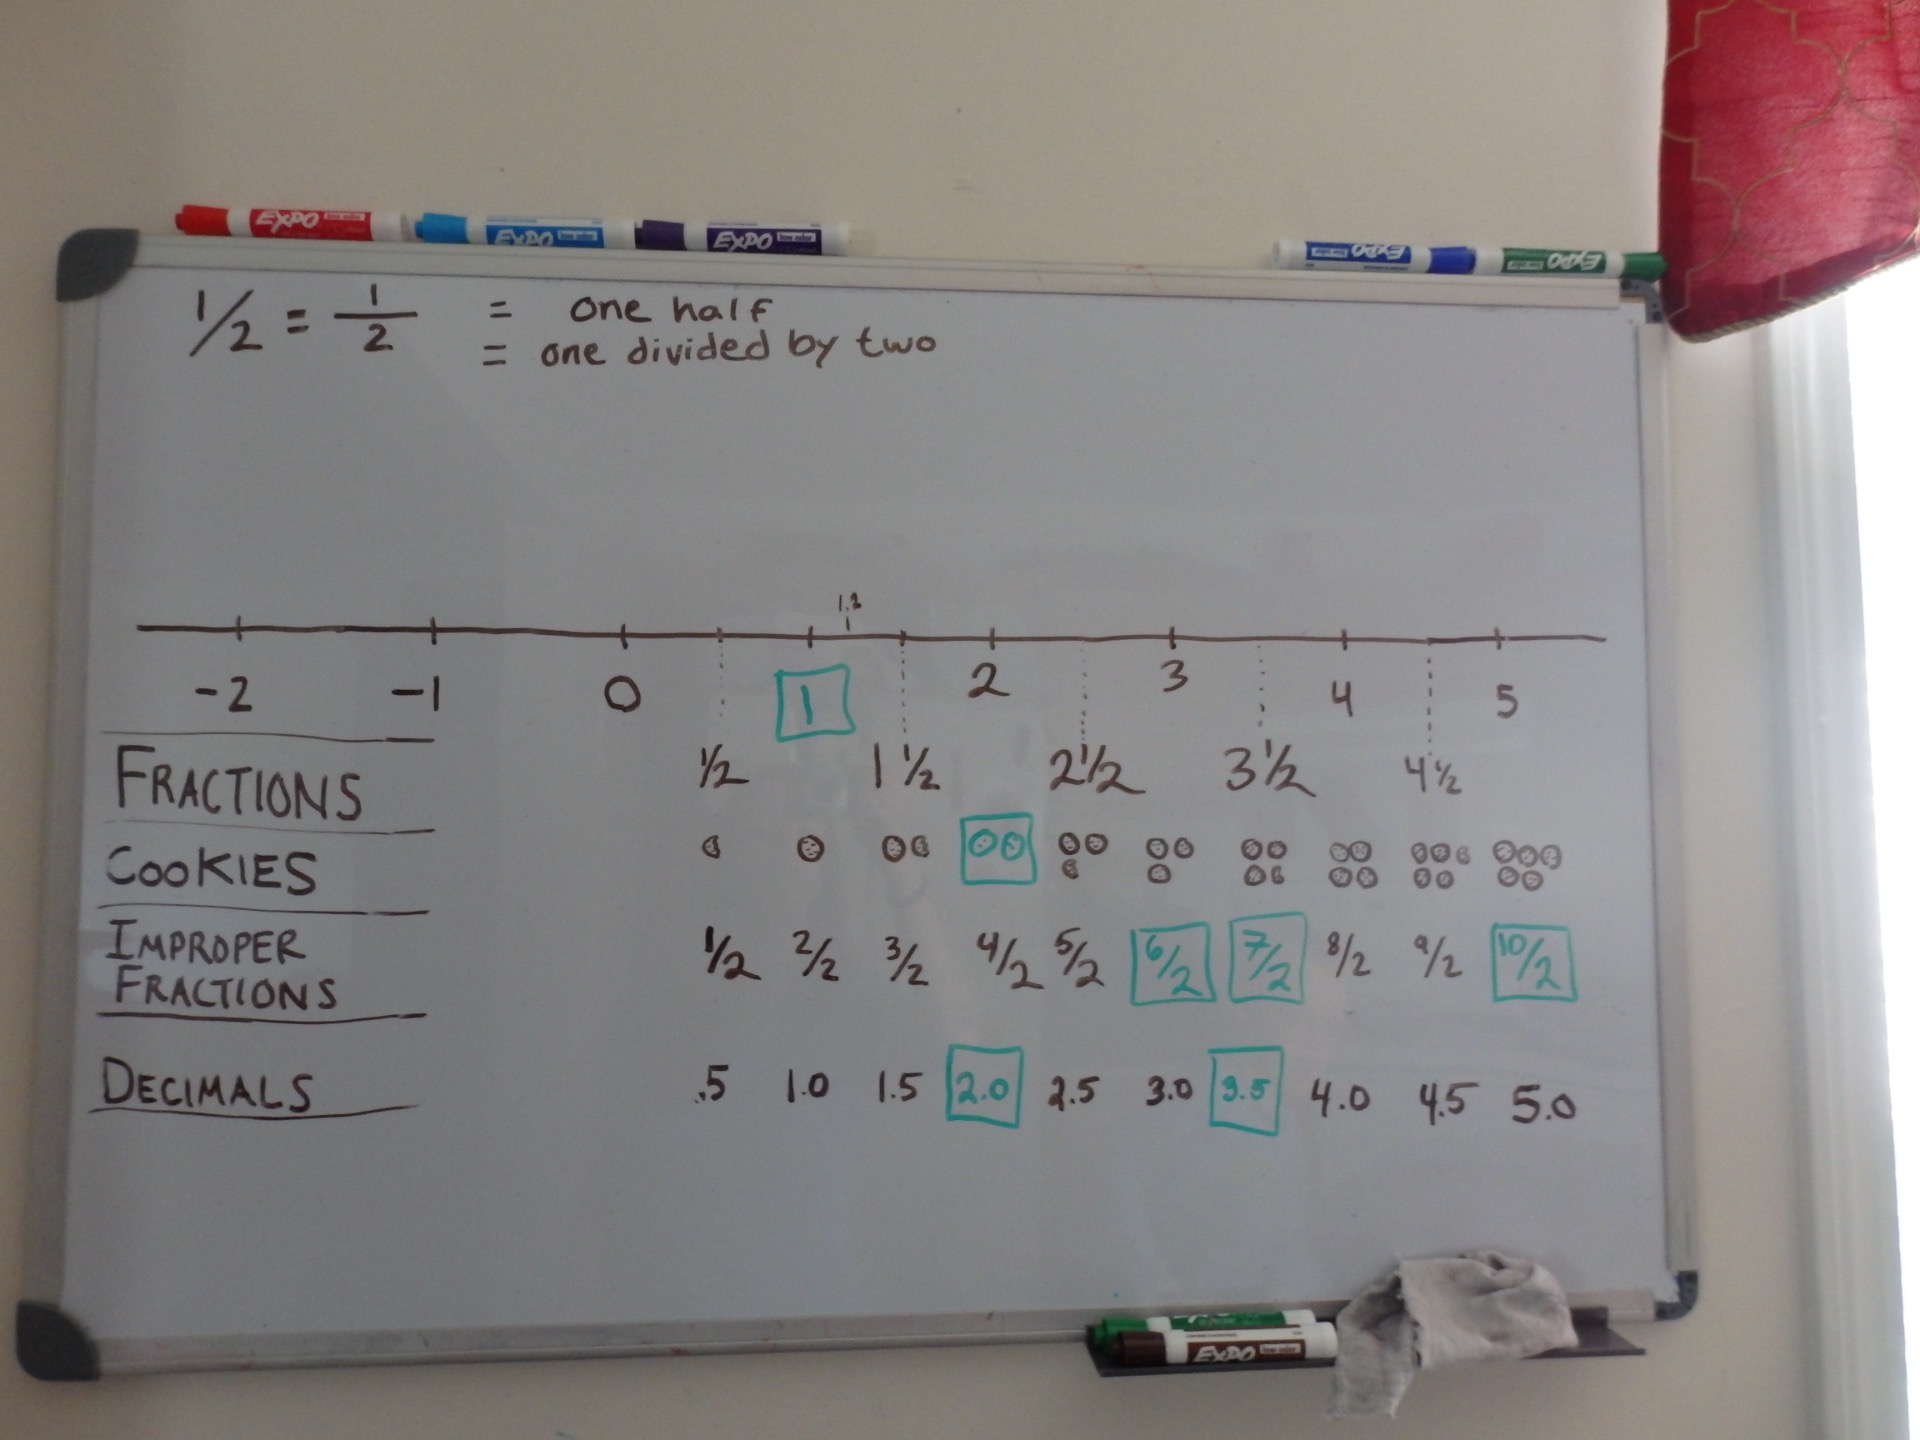 EXPO EXPO EXPO EXPO EXPO
1/2 = 1/2 = one half
= one divided by two
-2 -1 0 1 2 3 4 5
FRACTIONS 1/2 1 1/2 2 1/2 3 1/2 4 1/2
COOKIES
IMPROPER
FRACTIONS 1/2 2/2 3/2 4/2 5/2 6/2 7/2 8/2 9/2 10/2
DECIMALS .5 1.0 1.5 2.0 2.5 3.0 3.5 4.0 4.5 5.0
EXPO